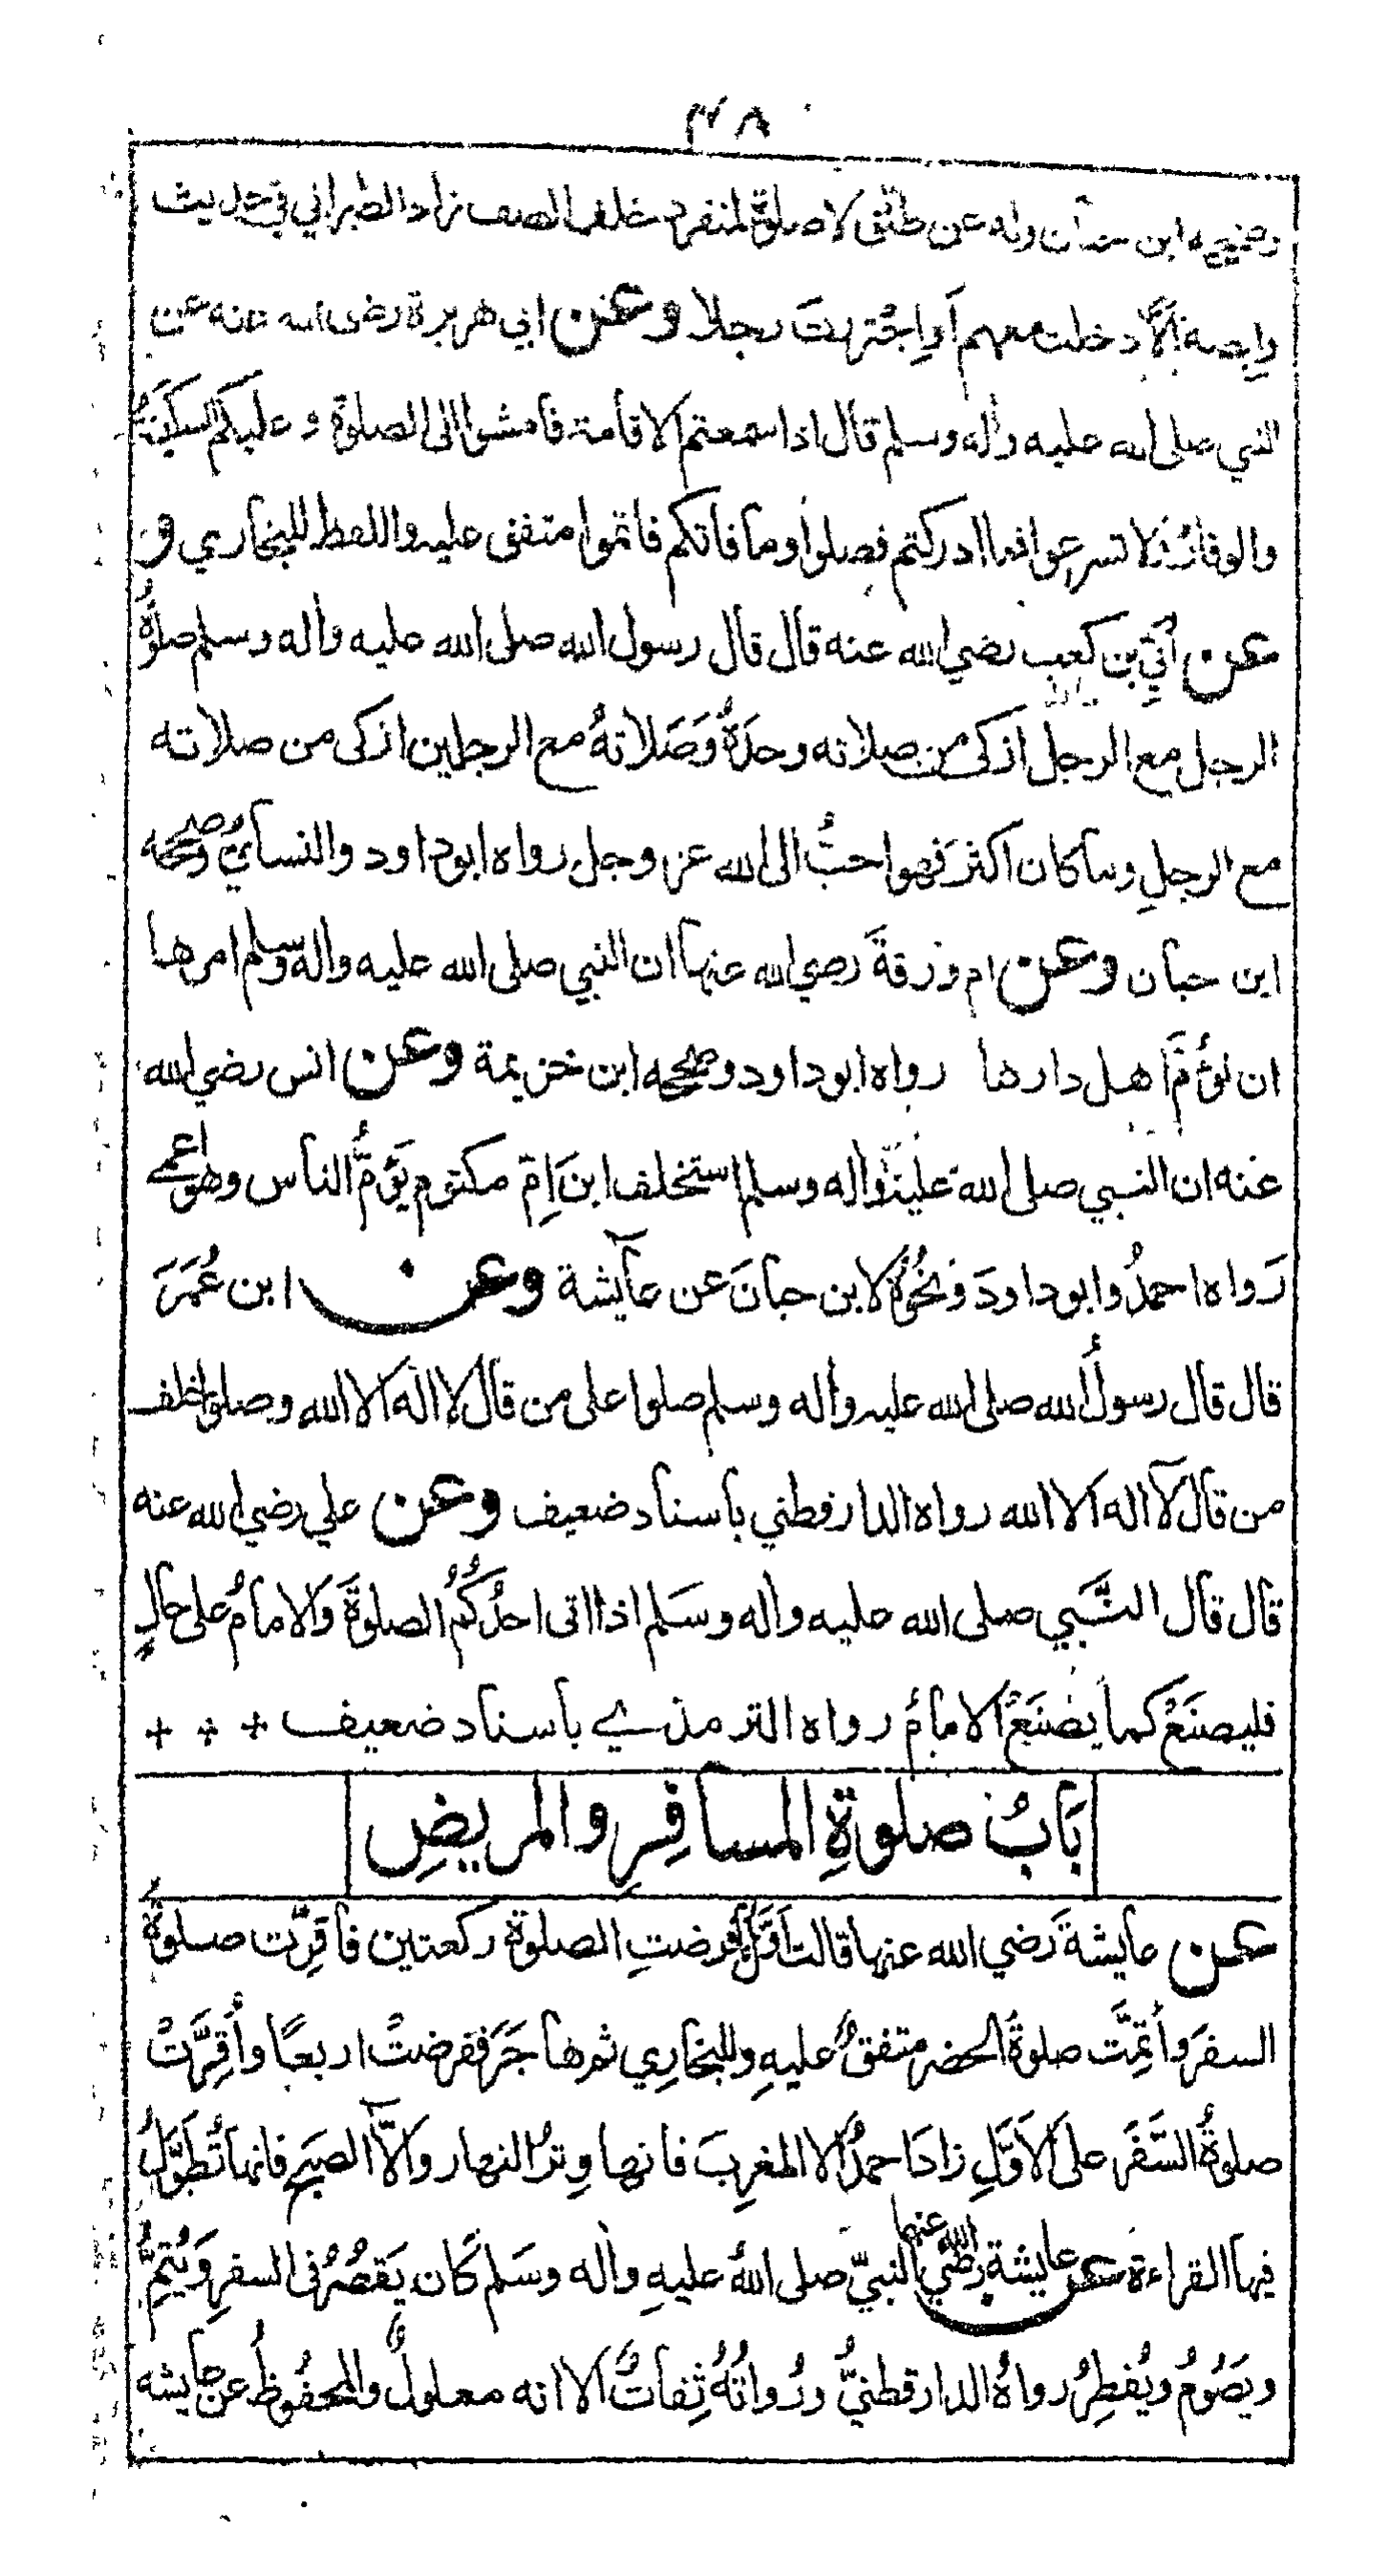 ٤٨
وصححه ابن حبان وله عن طلق لا صلوة لمنفرد خلف الصف زاد الطبراني في حديث
وابصة الا دخلت معهم او اجتررت رجلا وعن ابي هريرة رضي الله عنه عن
النبي صلى الله عليه واله وسلم قال اذا سمعتم الاقامة فامشوا الى الصلوة وعليكم السكينة
والوقار ولا تسرعوا فما ادركتم فصلوا وما فاتكم فاتموا متفق عليه واللفظ للبخاري و
عن أُبَيّ بن كعب رضي الله عنه قال قال رسول الله صلى الله عليه واله وسلم صلوةُ
الرجل مع الرجل ازكى من صلاته وحدَهُ وَصَلاتهُ مع الرجلين ازكى من صلاته
مع الرجلِ وما كان اكثرَ فهو احبُّ الى الله عز وجل رواه ابو داود والنسائيُّ وصححه
ابن حبان وعن ام ورقةَ رضي الله عنها ان النبي صلى الله عليه واله وسلم امرها
ان تؤُمَّ اهل دارها رواه ابو داود وصححه ابن خزيمة وعن انس رضي الله
عنه ان النبي صلى الله عليه واله وسلم استخلف ابن اُمّ مكتوم يَؤُمُّ الناس وهو اعمے
رَواه احمدُ وابو داودَ وَنحوُهُ لابن حبانَ عن عائشة وعن ابن عُمَرَ
قال قال رسولُ الله صلى الله عليه واله وسلم صلوا على من قال لا اله الا الله وصلوا خلف
من قال لا اله الا الله رواه الدارقطني باسناد ضعيف وعن علي رضي الله عنه
قال قال النَّبي صلى الله عليه واله وسَلم اذا اتى احدُكُمُ الصلوةَ وَالامامُ على حالٍ
فليصنَعْ كما يَصْنَعُ الامامُ رواه الترمذے باسناد ضعيف + + +
بَابُ صلوةِ المسافِرِ والمريضِ
عن عايشةَ رَضي الله عنها قالت اَوَّلُ ما فُرضتِ الصلوةُ ركعتين فاُقِرَّت صلوةُ
السفرَ واُتِمَّت صلوةُ الحضر متفقٌ عليهِ وللبخارِي ثم هاجَرَ ففرضتْ اربعًا واُقِرَّتْ
صلوةُ السَّفَر على الاَوَّلِ زادَ احمدُ الا المغرِبَ فانها وِترُ النهار والاَّ الصبحَ فانها تُطَوَّلُ
فيها القراءة عن عايشة رضي الله عنها ان النبيّ صلى اللهُ عليهِ واله وسَلم كان يَقصُرُ فى السفرِ وَيُتِمُّ
ويَصُومُ ويُفطِرُ رواهُ الدارقطنيُّ ورُواتُهُ ثِقاتٌ الا انه معلولٌ والمحفُوظُ عن عايشه